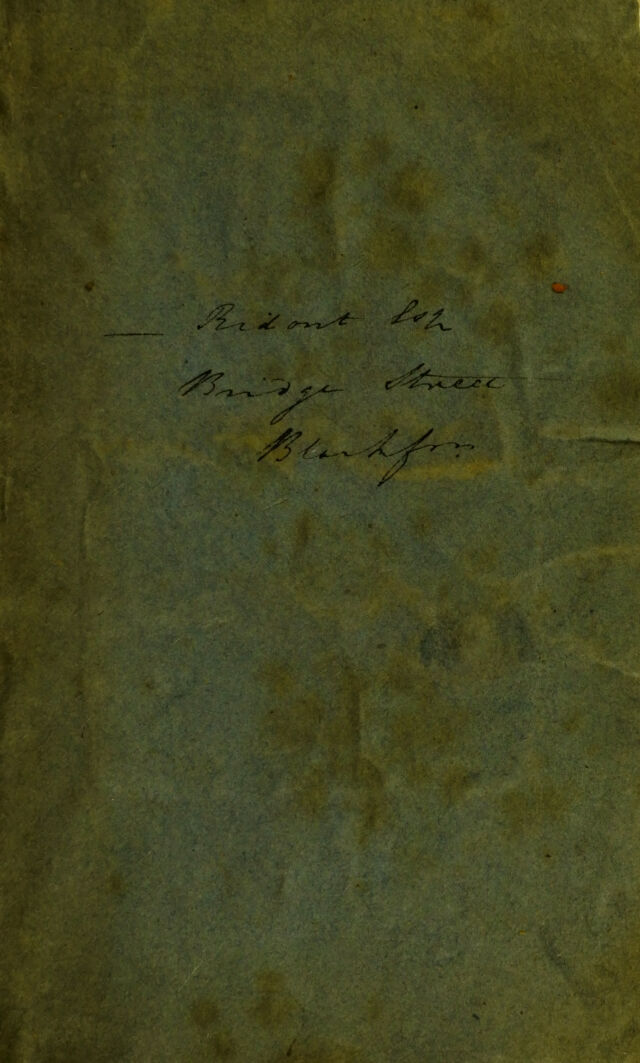 — Ridout Esq
Bridge Street
Blackfrs